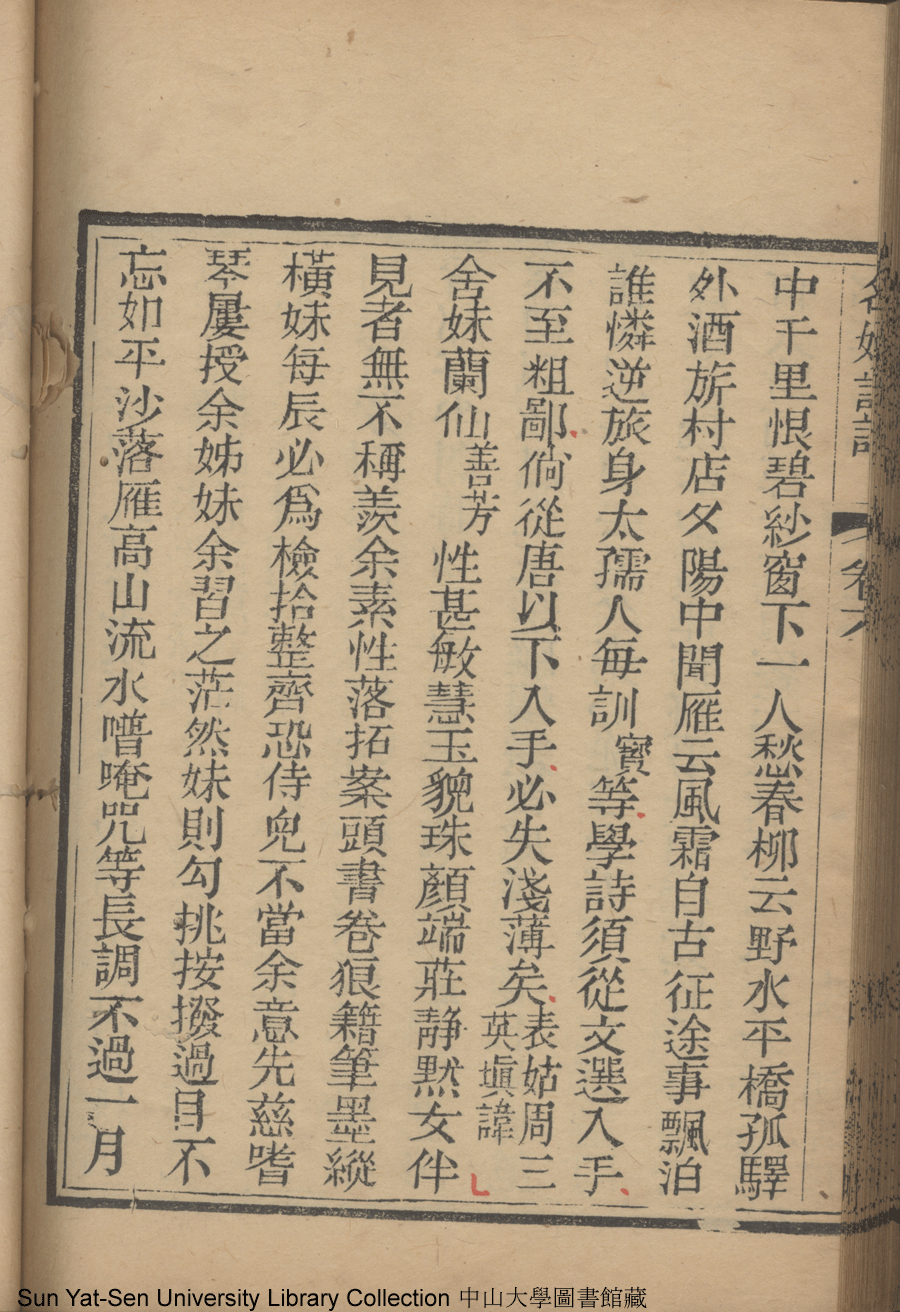 名媛詩話 卷六
中千里恨碧紗窗下一人愁春柳云野水平橋孤驛
外酒旂村店夕陽中聞雁云風霜自古征途事飄泊
誰憐逆旅身太孺人每訓寶等學詩須從文選入手
不至粗鄙倘從唐以下入手必失淺薄矣表姑周三英塡諱
舍妹蘭仙善芳性甚敏慧玉貌珠顏端莊靜默女伴
見者無不稱羨余素性落拓案頭書卷狼籍筆墨縱
橫妹每辰必爲檢拾整齊恐侍兒不當余意先慈嗜
琴屢授余姊妹余習之茫然妹則勾挑按撥過目不
忘如平沙落雁高山流水噆唵咒等長調不過一月
Sun Yat-Sen University Library Collection 中山大學圖書館藏